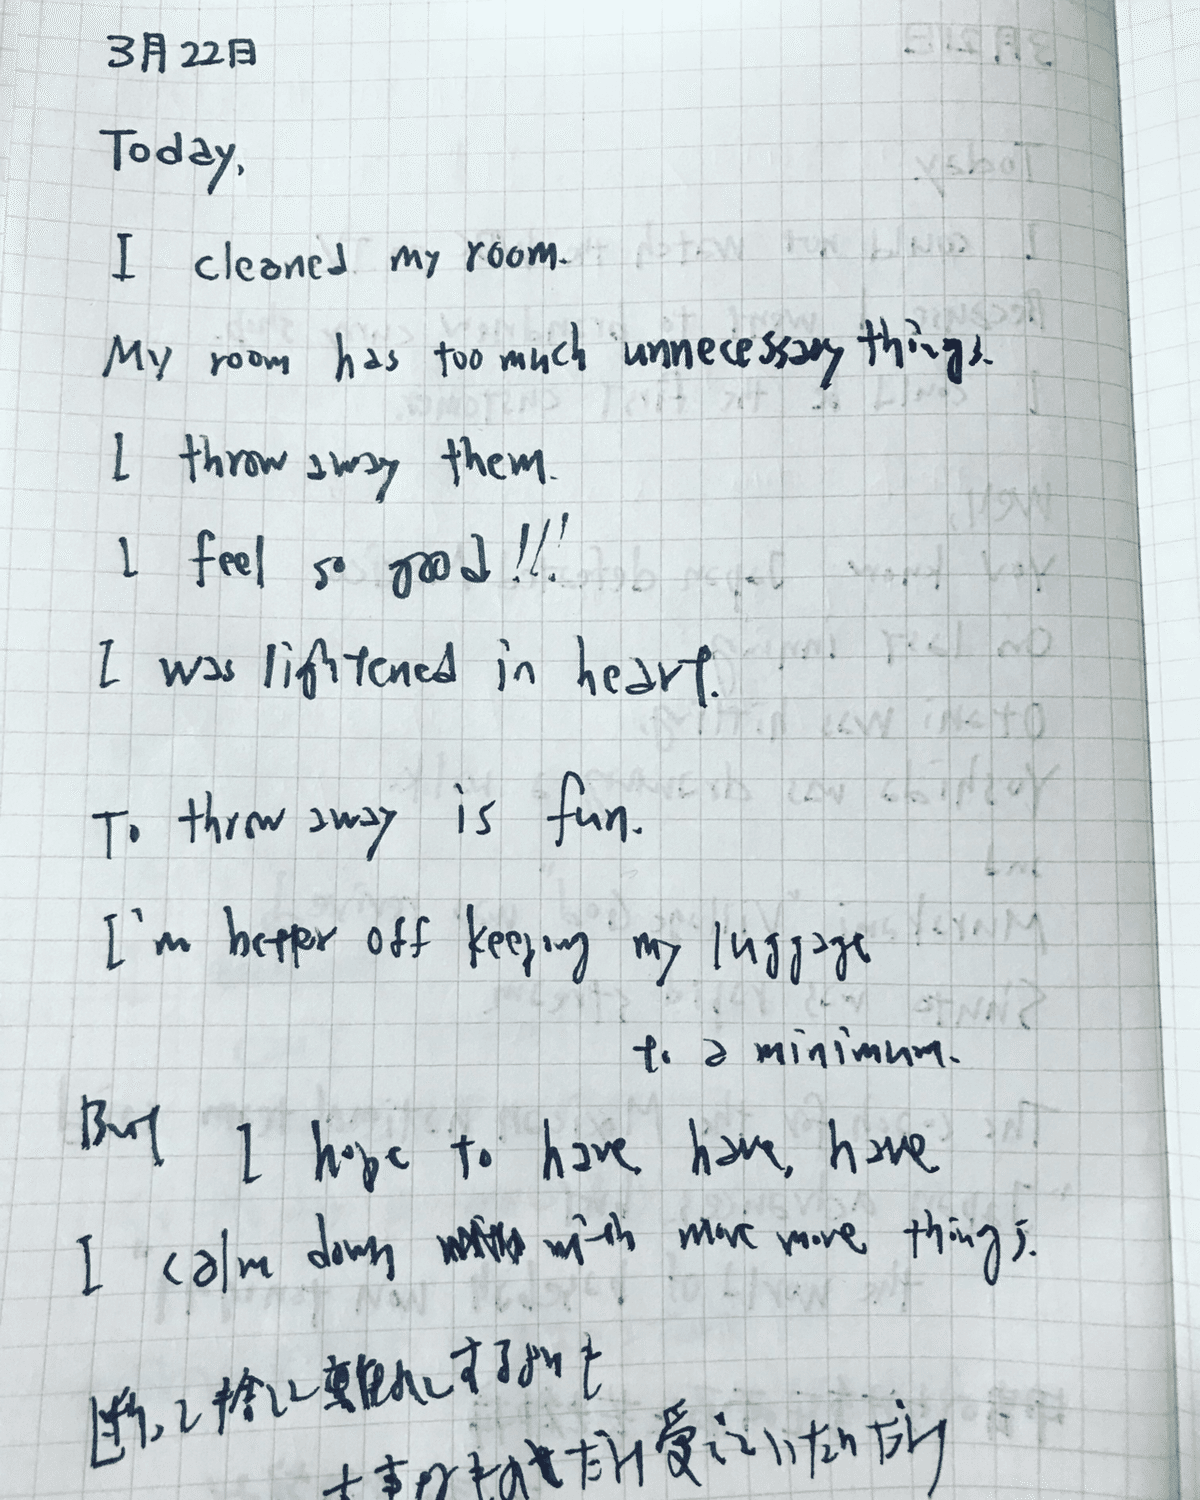 3月22日
Today,
I cleaned my room.
My room has too much unnecessary things.
I throw away them.
I feel so good!!!
I was lightened in heart.
To throw away is fun.
I'm better off keeping my luggage
to a minimum.
But I hope to have, have, have
I calm down with more more things.
断って捨てて離れてするよりも
大事なものをだけ受